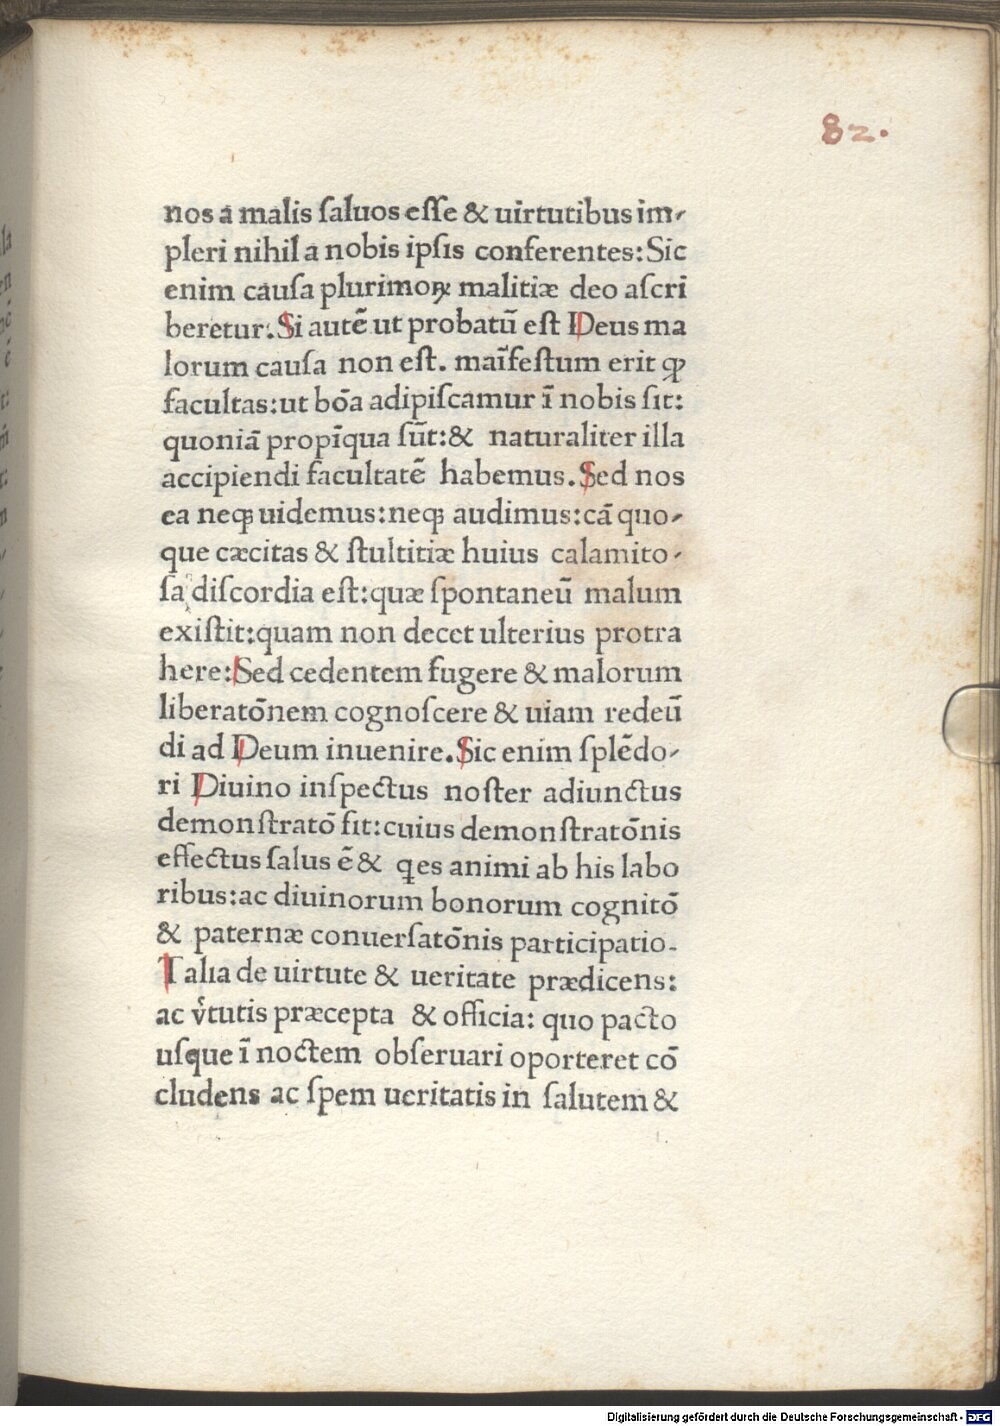 82.
nos a malis ſaluos eſſe & uirtutibus im-
pleri nihil a nobis ipſis conferentes: Sic
enim cauſa plurimoꝝ malitiæ deo aſcri
beretur. Si autẽ ut probatũ eſt Deus ma
lorum cauſa non eſt. maĩfeſtum erit ꝙ
facultas: ut bõa adipiſcamur ĩ nobis ſit:
quoniã propĩqua ſũt: & naturaliter illa
accipiendi facultatẽ habemus. Sed nos
ea neqꝫ uidemus: neqꝫ audimus: cã quo-
que cæcitas & ſtultitiæ huius calamito-
ſa diſcordia eſt: quæ ſpontaneũ malum
exiſtit: quam non decet ulterius protra
here: Sed cedentem fugere & malorum
liberatõnem cognoſcere & uiam redeũ
di ad Deum inuenire. Sic enim ſplẽdo-
ri Diuino inſpectus noſter adiunctus
demonſtratõ fit: cuius demonſtratõnis
effectus ſalus ẽ & qͥes animi ab his labo
ribus: ac diuinorum bonorum cognitõ
& paternæ conuerſatõnis participatio.
Talia de uirtute & ueritate prædicens:
ac v̉tutis præcepta & officia: quo pacto
uſque ĩ noctem obſeruari oporteret cõ
cludens ac ſpem ueritatis in ſalutem &
Digitalisierung gefördert durch die Deutsche Forschungsgemeinschaft - DFG